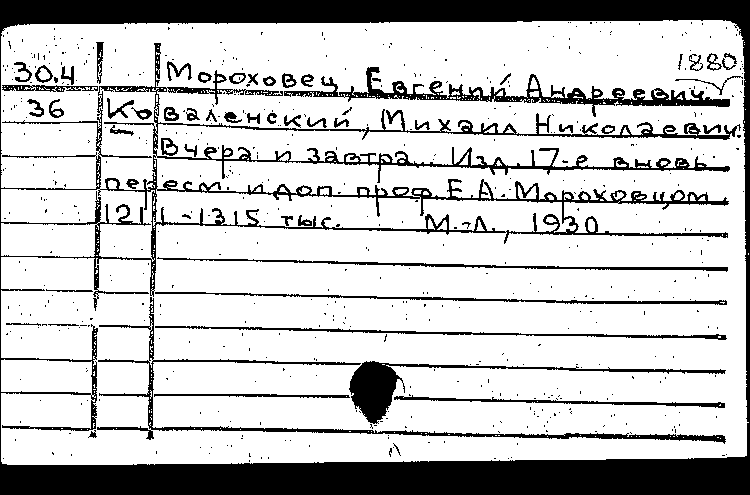 1880
30.4 Мороховец, Евгений Андреевич.
36 Коваленский, Михаил Николаевич.
Вчера и завтра. Изд. 17-е вновь
пересм. и доп. проф. Е.А. Мороховцом.
1211-1315 тыс. М.-Л., 1930.